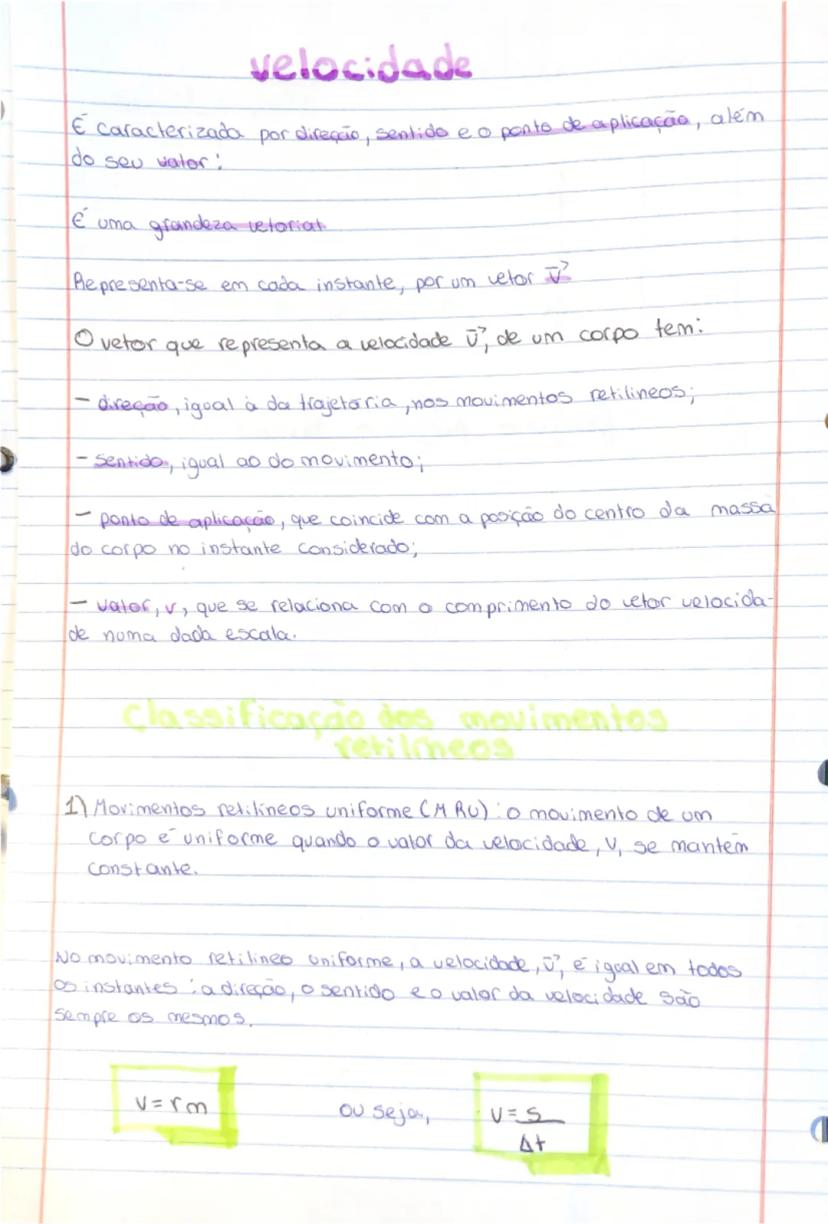 velocidade
É caracterizada por direção, sentido e o ponto de aplicação, além
do seu valor:
É uma grandeza vetorial
Representa-se em cada instante, por um vetor v⃗
O vetor que representa a velocidade v⃗, de um corpo tem:
- direção, igual à da trajetória, nos movimentos retilineos;
- sentido, igual ao do movimento;
- ponto de aplicação, que coincide com a posição do centro da massa
do corpo no instante considerado;
- valor, v, que se relaciona com o comprimento do vetor velocida-
de numa dada escala.
Classificação dos movimentos
retilíneos
1) Movimentos retilíneos uniforme (MRU): o movimento de um
corpo é uniforme quando o valor da velocidade, v, se mantém
constante.
No movimento retilineo uniforme, a velocidade, v⃗, é igual em todos
os instantes: a direção, o sentido e o valor da velocidade são
sempre os mesmos.
v = rm ou seja, v = s
Δt